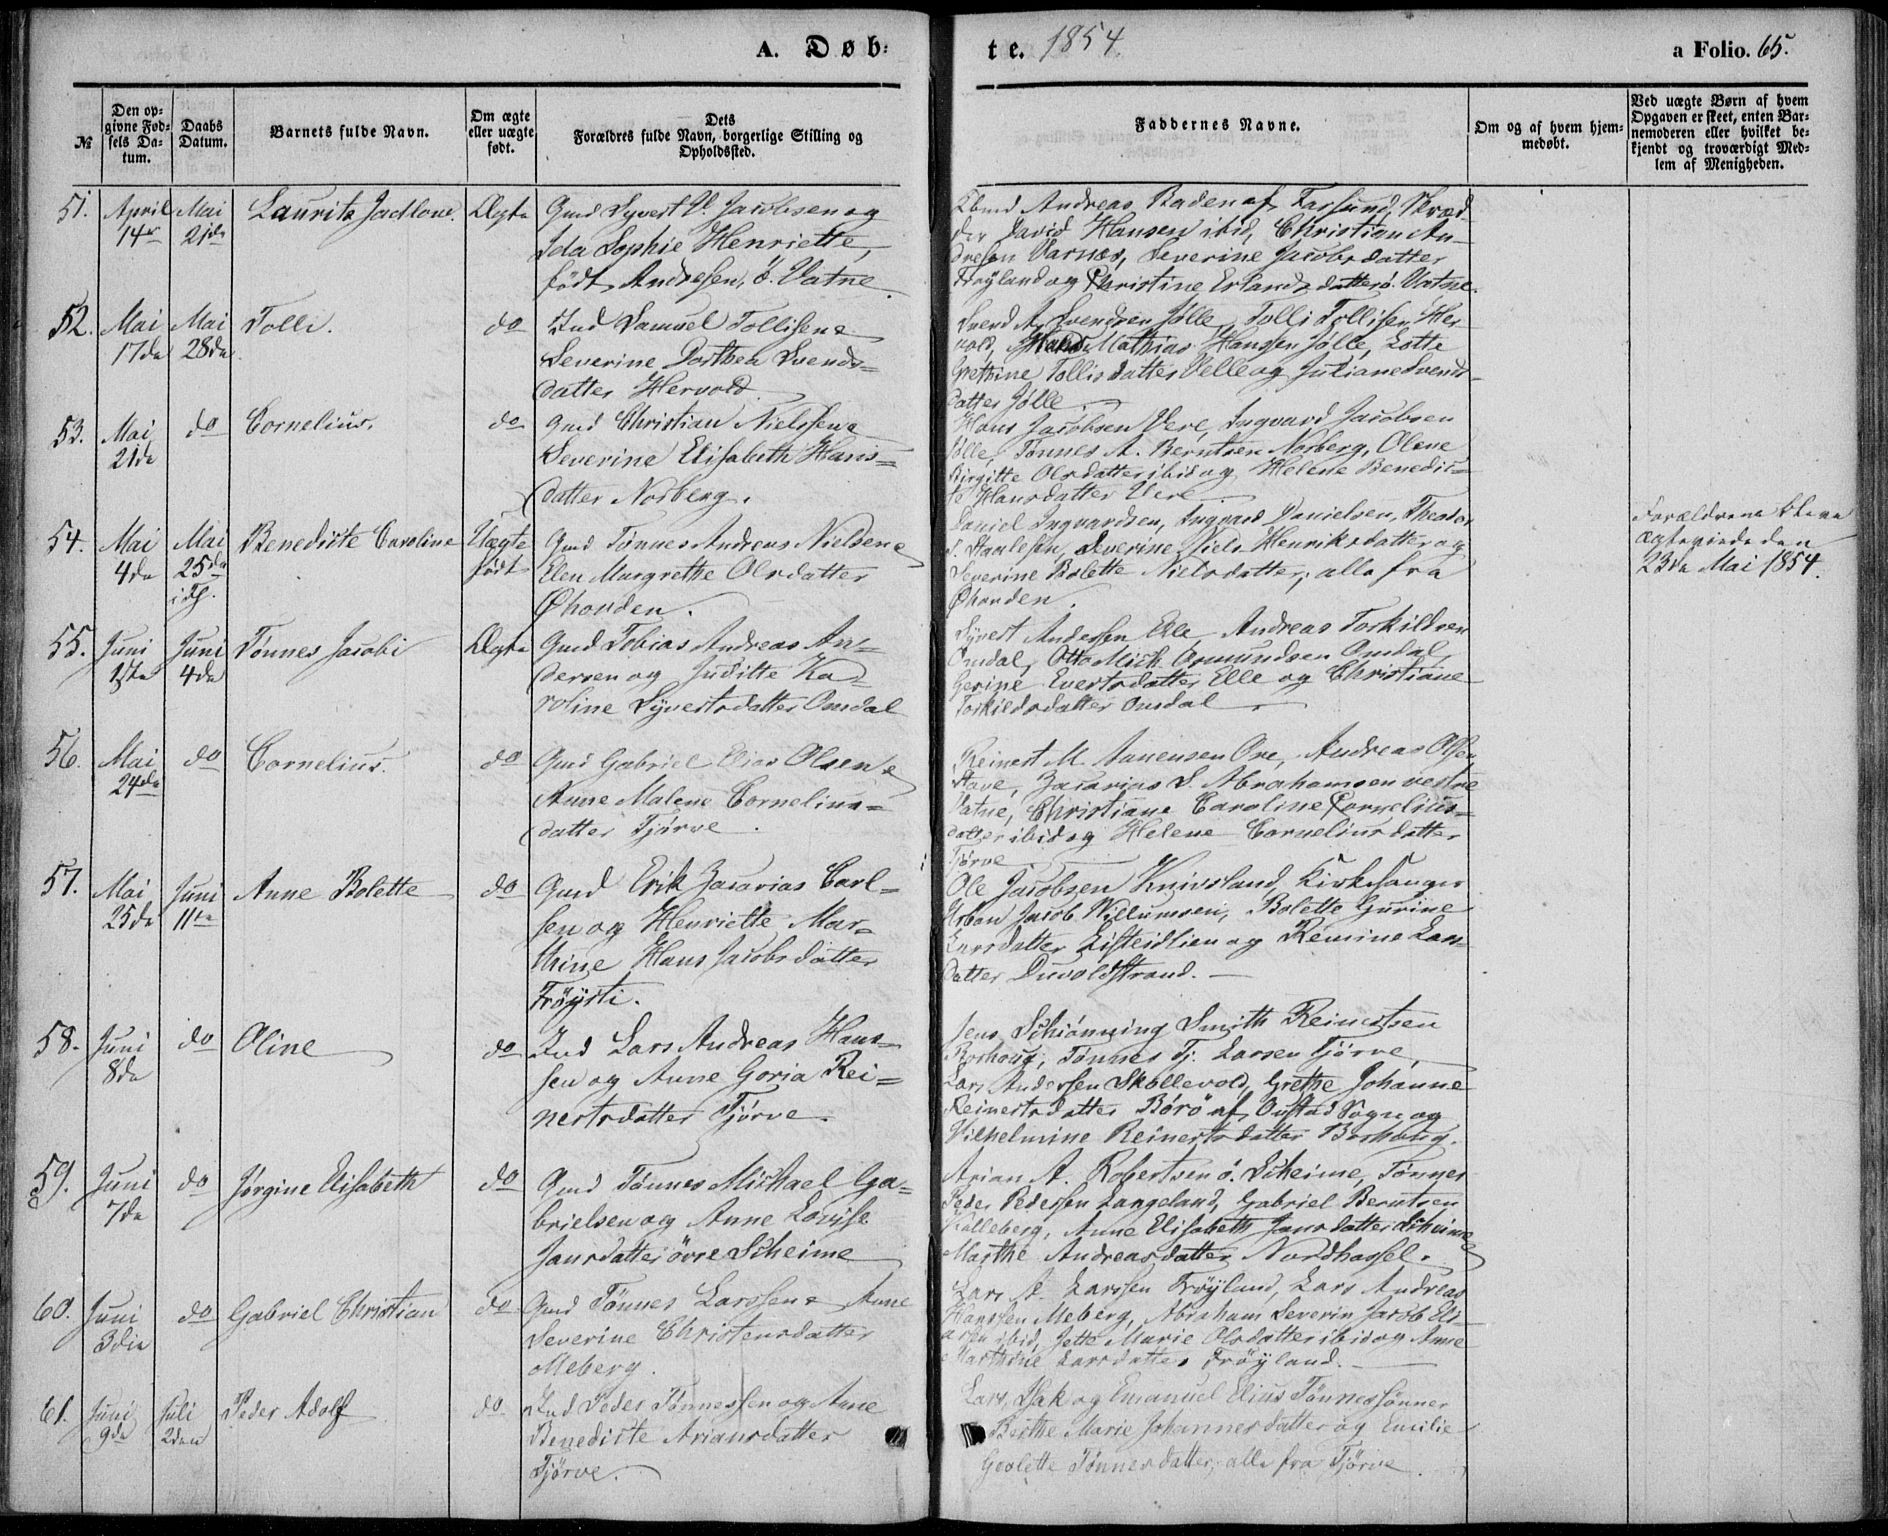 A. Døb-
te. 1854.
a Folio. 65.
№
Den op-
givne Fød-
sels Da-
tum.
Daabs
Datum.
Barnets fulde Navn.
Om ægte
eller uægte
født.
Dets
Forældres fulde Navn, borgerlige Stilling og
Opholdssted.
Faddernes Navne.
Om og af hvem hjem-
medøbt.
Ved uægte Børn af hvem
Opgaven er skeet, enten Bar-
nemoderen eller hvilket be-
kjendt og troværdigt Med-
lem af Menigheden.
51. April 14de Mai 21de Lauritz Ægte
Gmd Syvert Jacobsen og
Ida Sophie Henriette,
født Andresen, ö. Vatne
Andreas Baden af Farsund, Skræd
der David Hansen ibid, Christian An-
dresen Varnæs, Severine Jacobsdatter
Frøyland og Christine Erlandsdatter ö. Vatne.
52. Mai 17de Mai 28de Tolli. do
Ind Samuel Tollisen &
Severine Dorthea Svends-
datter Hervold
Svend A. Svendsen Jølle, Tolli Tollisen Her-
vold, Mathias Hansen Jølle, Lotte
Grethine Tollisdatter Velle og Juliane Svends-
datter Jølle
53. Mai 21de do Cornelius. do
Gmd Christian Nielssen &
Severine Elisabeth Hans-
datter Norberg.
Hans Jacobsen Vere, Ingvard Jacobsen
Jølle, Tønnes A. Berntsen Norberg, Olene
Birgitte Olsdatter ibid og Helene Benedic-
te Hansdatter Vere
54. Mai 4de Mai 25de Benedicte Caroline Uægte født
Gmd Tønnes Andreas Nielsen &
Elen Margrethe Olsdatter
Øhorden.
Daniel Ingvardsen, Ingvard Danielsen, Theodor
S. Staalesen, Severine Niels Henriksdatter og
Severine Bolette Nielsdatter, alle fra
Øhorden.
Forældrene bleve
ægteviede den
23de Mai 1854.
55. Juni 1ste Juni 4de Tønnes Jacobi Ægte
Gmd Tobias Andreas An-
dersen og Juditte Ka-
roline Syvertsdatter Omdal
Syvert Andersen Elle, Andreas Torkildsen
Omdal, Otto Mich. Osmundsen Omdal
Gerine Evertsdatter Elle og Christiane
Torkildsdatter Omdal
56. Mai 24de do Cornelius. do
Gmd Gabriel Elias Olsen &
Anne Malene Cornelius-
datter Tjørve.
Reinert M. Aanensen Ore, Andreas Olsen
Stave, Zacarias S. Abrahamsen vestre
Vatne, Christiane Caroline Cornelius-
datter ibid og Helene Corneliusdatter
Tjørve
57. Mai 25de Juni 11te Anne Bolette do
Gmd Erik Zacarias Carl-
sen og Henriette Mar-
thine Hans Jacobsdatter
Frøysti.
Ole Jacobsen Knivsland, Kirkesanger
Urban Jacob Willumsen, Bolette Gurine
Larsdatter Eisteidlien og Remine Lars-
datter Duvoldstrand.
58. Juni 8de do Oline do
Ind Lars Andreas Hans-
sen og Anne Goria Rei-
nertsdatter Tjørve.
Jens Schiønning Smith Reinertsen
Borhoug, Tønnes Tj. Larsen Tjørve,
Lars Andersen Skollevold, Grethe Johanne
Reinertsdatter Börö af Oustad Sogn og
Vilhelmine Reinertsdatter Borhoug.
59. Juni 7de do Jørgine Elisabeth do
Gmd Tønnes Michael Ga-
brielsen og Anne Lovise
Jansdatter övre Scheime
Arian A. Robertsen ö. Scheime, Tønnes
Peder Pedersen Langeland, Gabriel Berntsen
Kalleberg, Anne Elisabeth Jansdatter Scheime
Marthe Andreasdatter Nordhassel.
60. Juni 3die do Gabriel Christian do
Gmd Tønnes Larssen & Anne
Severine Christensdatter
Meberg.
Lars A. Larssen Frøyland, Lars Andreas
Hanssen Meberg, Abraham Severin Jacob Eli-
asen ibid, Jette Marie Olsdatter ibid og Anne
Marthine Larsdatter Frøyland.
61. Juni 9de Juli 2den Peder Adolf do
Ind Peder Tønnessen og Anne
Benedicte Ariansdatter
Tjørve.
Lars Isak og Emanuel Elius Tønnessønner
Berthe Marie Johannesdatter og Emilie
Geolette Tønnesdatter, alle fra Tjørve.